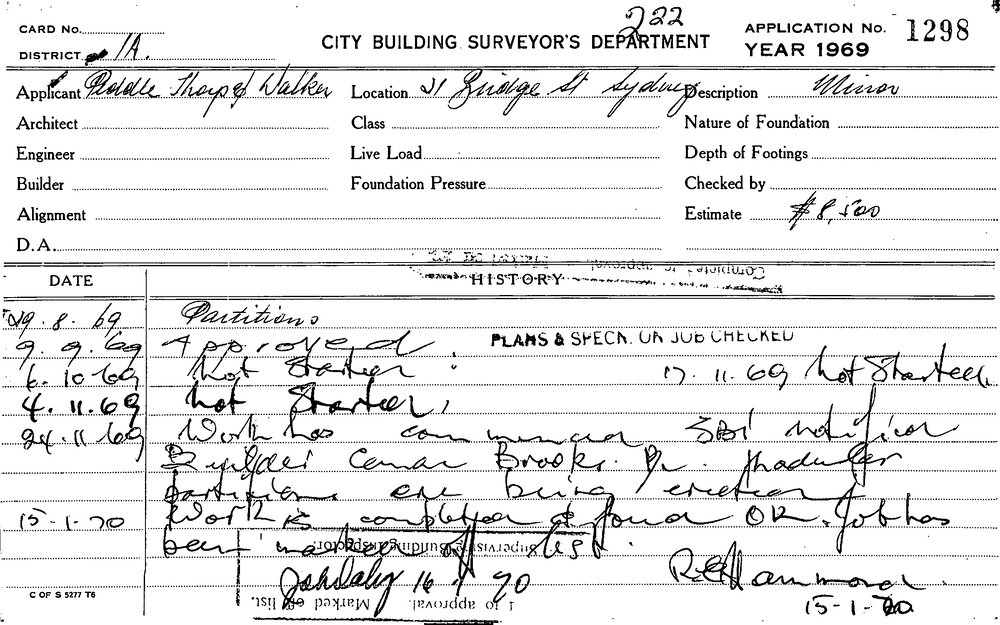 222
CARD No.
DISTRICT 1A.
CITY BUILDING SURVEYOR'S DEPARTMENT
APPLICATION No. 1298
YEAR 1969
Applicant Peddle Thorp & Walker Location 21 Bridge St Sydney Description Minor
Architect Class Nature of Foundation
Engineer Live Load Depth of Footings
Builder Foundation Pressure Checked by
Alignment Estimate $8,500
D.A.
DATE HISTORY
29.8.69 Partitions
9.9.69 Approved PLANS & SPECN. ON JOB CHECKED
6.10.69 Not Started. 17.11.69 Not Started.
4.11.69 Not Started,
24.11.69 Work has commenced SBI notified
Builder Brooks.
partitions are being erected
15-1-70 Work is completed & found OK. Job has
been marked off list.
Supervising Building Inspector.
John Daly 16 1 70 R Hammond.
to approval. Marked off list. 15-1-70
C OF S 5277 T6